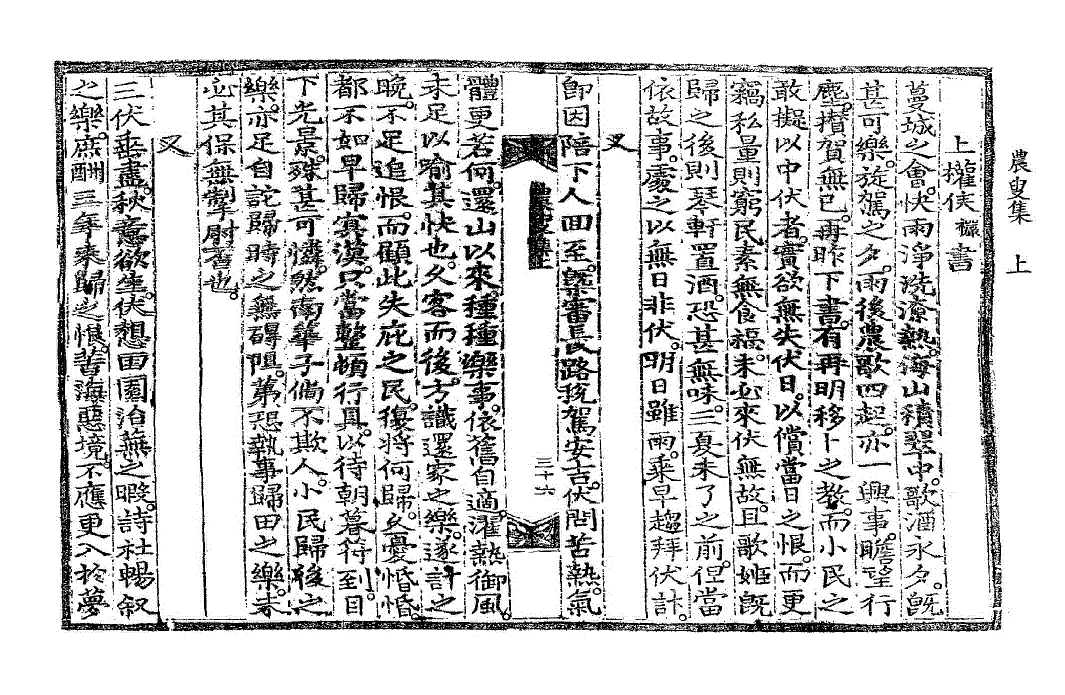 農叟集 上
上權侯襐書
蔓城之會。快雨淨洗潦熱。海山積翠中。歌酒永夕。旣
甚可樂。旋駕之夕。雨後農歌四起。亦一興事。瞻望行
塵。攢賀無已。再昨下書。有再明移卜之敎。而小民之
敢擬以中伏者。實欲無失伏日。以償當日之恨。而更
竊私量則窮民素無食福。未必來伏無故。且歌姬旣
歸之後則琴軒置酒。恐甚無味。三夏未了之前。但當
依故事。處之以無日非伏。明日雖雨。乘早趨拜伏計。
又
卽因陪下人回至。槩審長路稅駕安吉。伏問苦熱。氣
農叟集上
三十六
體更若何。還山以來種種樂事。依舊自適。濯熱御風。
未足以喻其快也。久客而後。方識還家之樂。遂計之
晩。不足追恨。而顧此失庇之民。復將何歸。久憂惛惛。
都不如早歸寂漠。只當整頓行具。以待朝暮符到。目
下光景。殊甚可憐。然南華子倘不欺人。小民歸後之
樂。亦足自詑歸時之無碍阻。第恐執事歸田之樂。未
必其保無掣肘者也。
又
三伏垂盡。秋意欲生。伏想田園治蕪之暇。詩社暢叙
之樂。庶酬三年未歸之恨。苦海惡境。不應更入於夢